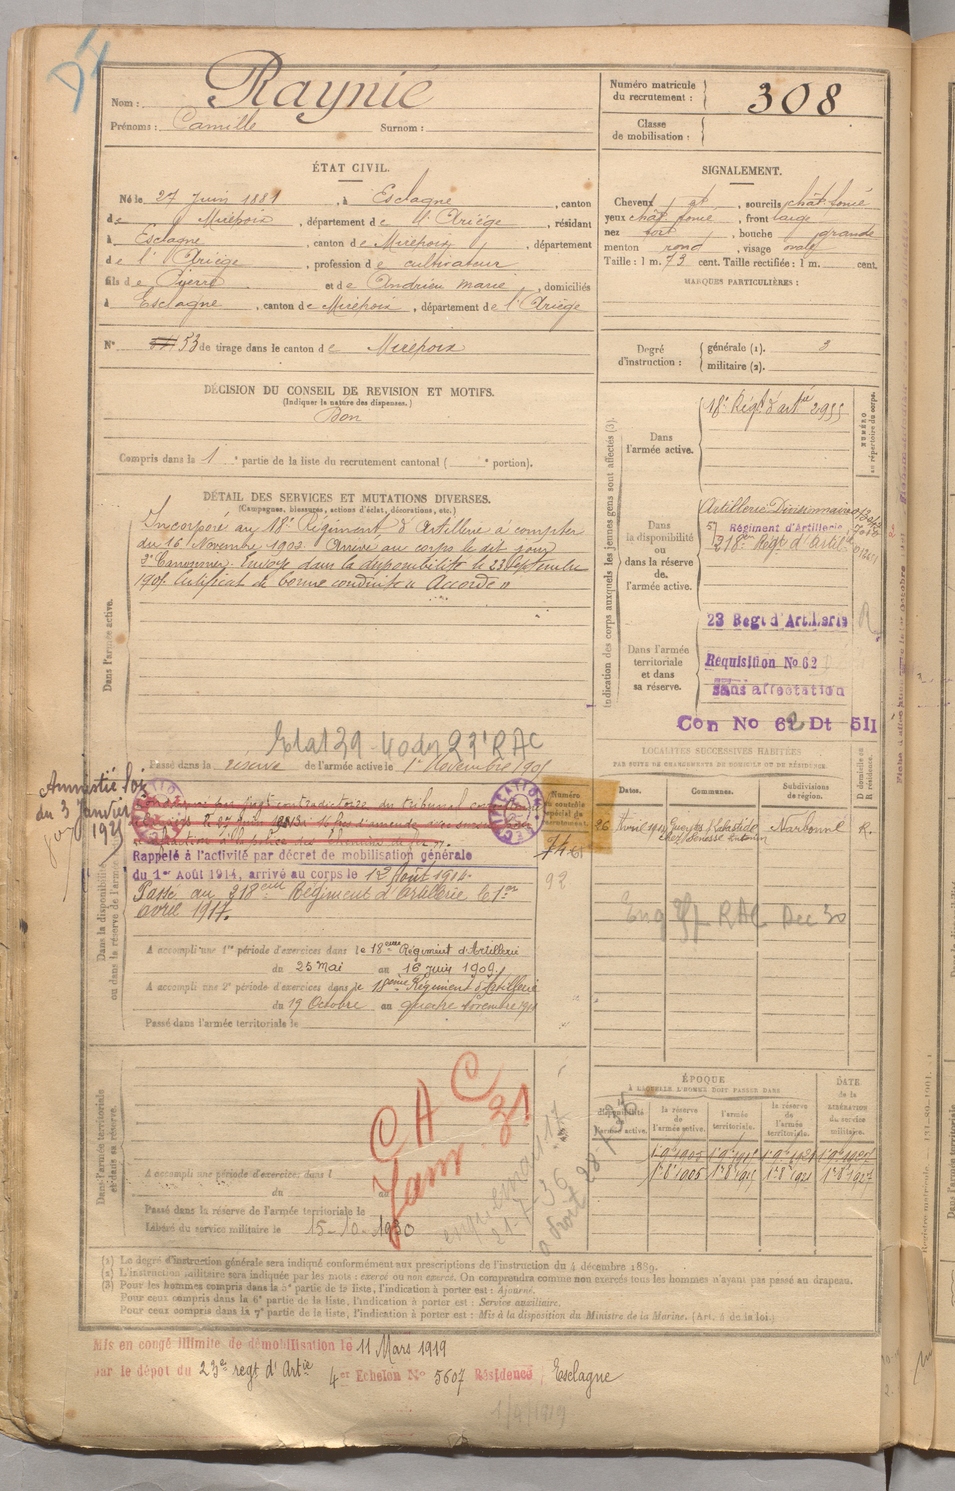 Nom : Raynié
Prénoms : Camille Surnom :
Numéro matricule du recrutement : 308
Classe de mobilisation :
ÉTAT CIVIL.
Né le 27 Juin 1881, à Esclagne, canton
de Mirepoix, département de l'Ariège, résidant
à Esclagne, canton de Mirepoix, département
de l'Ariège, profession de cultivateur
fils de Pierre et de Andrieu marie, domiciliés
à Esclagne, canton de Mirepoix, département de l'Ariège
N° 53 de tirage dans le canton de Mirepoix
SIGNALEMENT.
Cheveux, sourcils chât foncé
yeux chât foncé, front large
nez fort, bouche grande
menton rond, visage ovale
Taille : 1 m. 73 cent. Taille rectifiée : 1 m. cent.
MARQUES PARTICULIÈRES :
Degré d'instruction : générale (1). 3
militaire (2).
DÉCISION DU CONSEIL DE REVISION ET MOTIFS.
(Indiquer la nature des dispenses.)
Bon
Compris dans la 1 e partie de la liste du recrutement cantonal ( e portion).
DÉTAIL DES SERVICES ET MUTATIONS DIVERSES.
(Campagnes, blessures, actions d'éclat, décorations, etc.)
Dans l'armée active.
Incorporé au 18e Régiment d'Artillerie à compter
du 16 Novembre 1902. Arrivé au corps le dit jour
2e Canonnier. Envoyé dans la disponibilité le 23 Septembre
1905. Certificat de bonne conduite "Accordé"
Etat 39 23e RAC
Passé dans la réserve de l'armée active le 1er Novembre 1905
Indication des corps auxquels les jeunes gens sont affectés (3).
NUMÉRO au répertoire du corps.
Dans l'armée active.
18e Régt d'artie 2955
Dans la disponibilité ou dans la réserve de l'armée active.
Artillerie Divisionnaire
57 Régiment d'Artillerie
218e Régt d'Artil
Dans l'armée territoriale et dans sa réserve.
23 Regt d'Artillerie
Requisition No 62
Sans affectation
Con No 62 Dt 511
LOCALITÉS SUCCESSIVES HABITÉES
PAR SUITE DE CHANGEMENTS DE DOMICILE OU DE RÉSIDENCE.
Dates. Communes. Subdivisions de région. D domicile ou R résidence.
26 Avril 1911 Narbonne R.
RAC Dec 30
Amnistié loi
du 3 Janvier
1925
Numéro du contrôle spécial du recrutement.
92
Rappelé à l'activité par décret de mobilisation générale
du 1er Août 1914, arrivé au corps le 12 Août 1914.
Passé au 218eme Régiment d'Artillerie le 1er
avril 1917.
Dans la disponibilité ou dans la réserve de l'armée
A accompli une 1re période d'exercices dans le 18eme Régiment d'Artillerie
du 25 mai au 16 juin 1909
A accompli une 2e période d'exercices dans le 18eme Régiment d'Artillerie
du 19 Octobre au quatre Novembre 1911
Passé dans l'armée territoriale le
Dans l'armée territoriale et dans sa réserve.
C A C
Janv. 31
A accompli une période d'exercices dans l
du au
Passé dans la réserve de l'armée territoriale le
Libéré du service militaire le 15-10-1930
ÉPOQUE
À LAQUELLE L'HOMME DOIT PASSER DANS
DATE de la libération du service militaire.
disponibilité de l'armée active. la réserve de l'armée active. l'armée territoriale. la réserve de l'armée territoriale.
(1) Le degré d'instruction générale sera indiqué conformément aux prescriptions de l'instruction du 4 décembre 1889.
(2) L'instruction militaire sera indiquée par les mots : exercé ou non exercé. On comprendra comme non exercés tous les hommes n'ayant pas passé au drapeau.
(3) Pour les hommes compris dans la 5e partie de la liste, l'indication à porter est : Ajourné.
Pour ceux compris dans la 6e partie de la liste, l'indication à porter est : Service auxiliaire.
Pour ceux compris dans la 7e partie de la liste, l'indication à porter est : Mis à la disposition du Ministre de la Marine. (Art. 4 de la loi.)
Mis en congé illimité de démobilisation le 11 Mars 1919
par le dépot du 23e regt d'Artie 4er Echelon No 5607 Résidence, Esclagne
1/4/1919